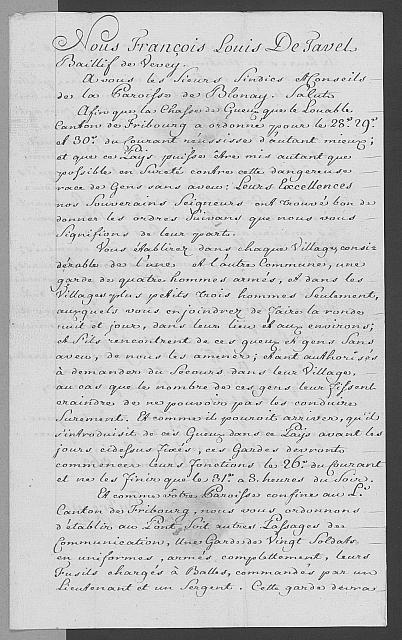 Nous François Louis De Tavel
Baillif de Vevey.
A vous les Sieurs Sindics et Conseils
de la Paroisse de Blonay. Salut
Afin que la Chasse de Gueux que le Louable
Canton de Fribourg a ordonné pour les 28e 29e
et 30e du Courant réussisse d'autant mieux;
et que ce Païs puisse être mis autant que
possible en Sureté contre cette dangereuse
race de Gens sans aveu; Leurs Excellences
nos Souverains Seigneurs ont trouvé bon de
donner les ordres Suivans que nous vous
Signifions de leur part.
Vous établirez dans chaque Village consi-
dérable de l'une et l'autre Commune, une
garde de quatre hommes armés, et dans les
Villages plus petits trois hommes Seulement,
auxquels vous enjoindrez de faire la ronde
nuit et jour, dans leur lieu et aux environs;
et S'ils rencontrent de ces gueux et gens Sans
aveu, de nous les amener; étant authorisés
à demander du Secours dans leur Village,
au cas que le nombre de ces gens leur fissent
craindre de ne pouvoir pas les conduire
Surement. Et comme il pouroit arriver, qu'il
s'introduisit de ces Gueux dans ce Païs avant les
jours cidessus fixés, ces Gardes devront
commencer leurs fonctions le 26e du Courant
et ne les finir que le 31e à 8. heures du Soir.
Et comme votre Paroisse confine au L.
Canton de Fribourg, nous vous ordonnons
d'établir au Pont, Soit autres Passages de
Communication, Une Garde de Vingt Soldats
en uniformes, armés complettement, leurs
Fusils chargés à Balles, commandés par un
Lieutenant et un Sergent. Cette garde devra